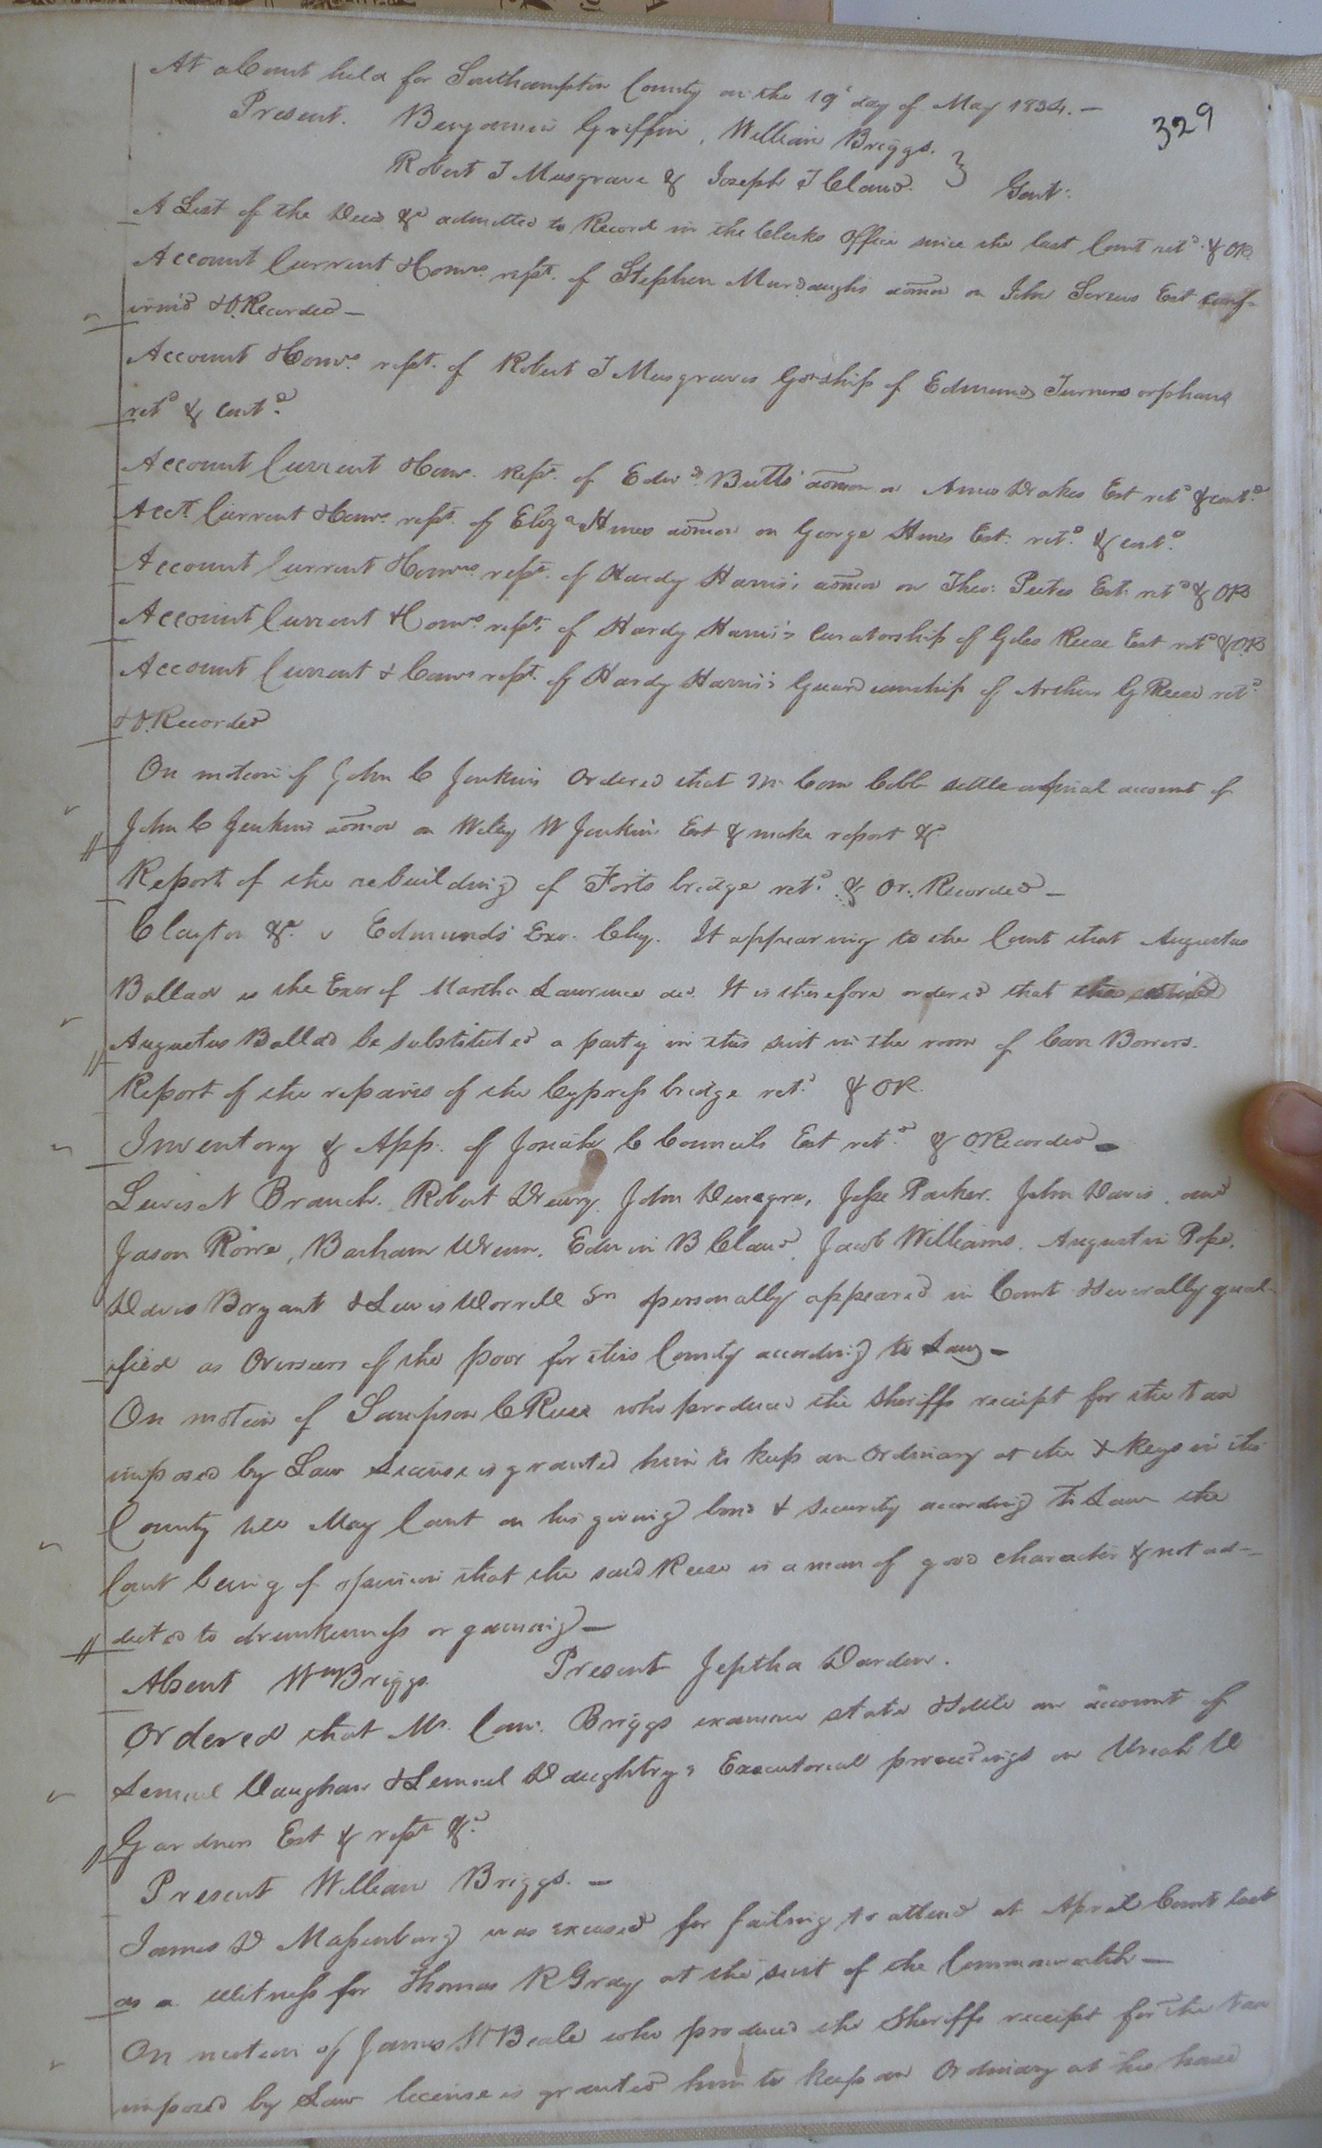 At a Court held for Southampton County on the 19th day of May 1834. —
329
Present. Benjamin Griffin, William Briggs.
Robert T Musgrave & Joseph T Claud. } Gent:
A List of the Deeds &c admitted to Record in the Clerks Office since the last Court retd. & OR
Account Current & Comrs. rept. of Stephen Murdaughs admon on John Screws Est conf-
irmd & O.Recorded —
Account & Comrs. rept. of Robert T Musgraves Gdship of Edmund Turners orphans
retd & contd.
Account Current & Comr. Rept. of Edwd. Butts admon on Amos Drakes Est retd & contd.
Acct. Current & Comrs. rept. of Eliza Hines admon on George Hines Est. retd. & contd.
Account Current & Comrs. rept. of Hardy Harris's admon on Theo: Peetes Est. retd & OR
Account Current & Comrs. rept. of Hardy Harris's Curatorship of Giles Reese Est retd & OR
Account Current & Comrs rept. of Hardy Harris's Guardianship of Arthur G Reese retd.
& O.Recorded
On motion of John C Jenkins Ordered that Mr. Com Cobb settle a final account of
John C Jenkins admon on Wiley W Jenkins Est & make report &c
Report of the rebuilding of Forts bridge retd. & Or. Recorded —
Clayton &c. v Edmunds' Exor. Chy. It appearing to the Court that Augustus
Ballad is the Exor of Martha Lawrence decd. It is therefore ordered that the said
Augustus Ballad be substituted a party in this suit in the room of Carr Bowers.
Report of the repairs of the Cypress bridge retd. & OR.
Inventory & App. of Josiah C Councils Est retd. & O.Recorded —
Lewis N Branch. Robert Drewry, John Denegre, Jesse Parker. John Davis, and
Jason Rowe, Barham Wrenn. Edwin B Claud, Jacob Williams. Augustin Pope.
Davis Bryant & Lewis Worrell Sn personally appeared in Court & severally quali-
fied as Overseers of the poor for this County according to Law —
On motion of Sampson C Reese who produced the Sheriffs receipt for the tax
imposed by Law License is granted him to keep an Ordinary at the + Keys in this
County till May Court on his giving bond & security according to Law the
Court being of opinion that the said Reese is a man of good character & not ad-
dicted to drunkenness or gaming —
Absent Wm Briggs Present Jeptha Darden.
Ordered that Mr. Com. Briggs examine state & settle an account of
Lemuel Vaughan & Lemuel Daughtry's Executorial proceedings on Uriah W
Gardners Est & rept &c.
Present William Briggs. —
James D Massenburg was excused for failing to attend at April Court last
as a Witness for Thomas R Gray at the suit of the Commonwealth —
On motion of James W Beale who produced the Sheriffs receipt for the tax
imposed by Law license is granted him to keep an Ordinary at his house